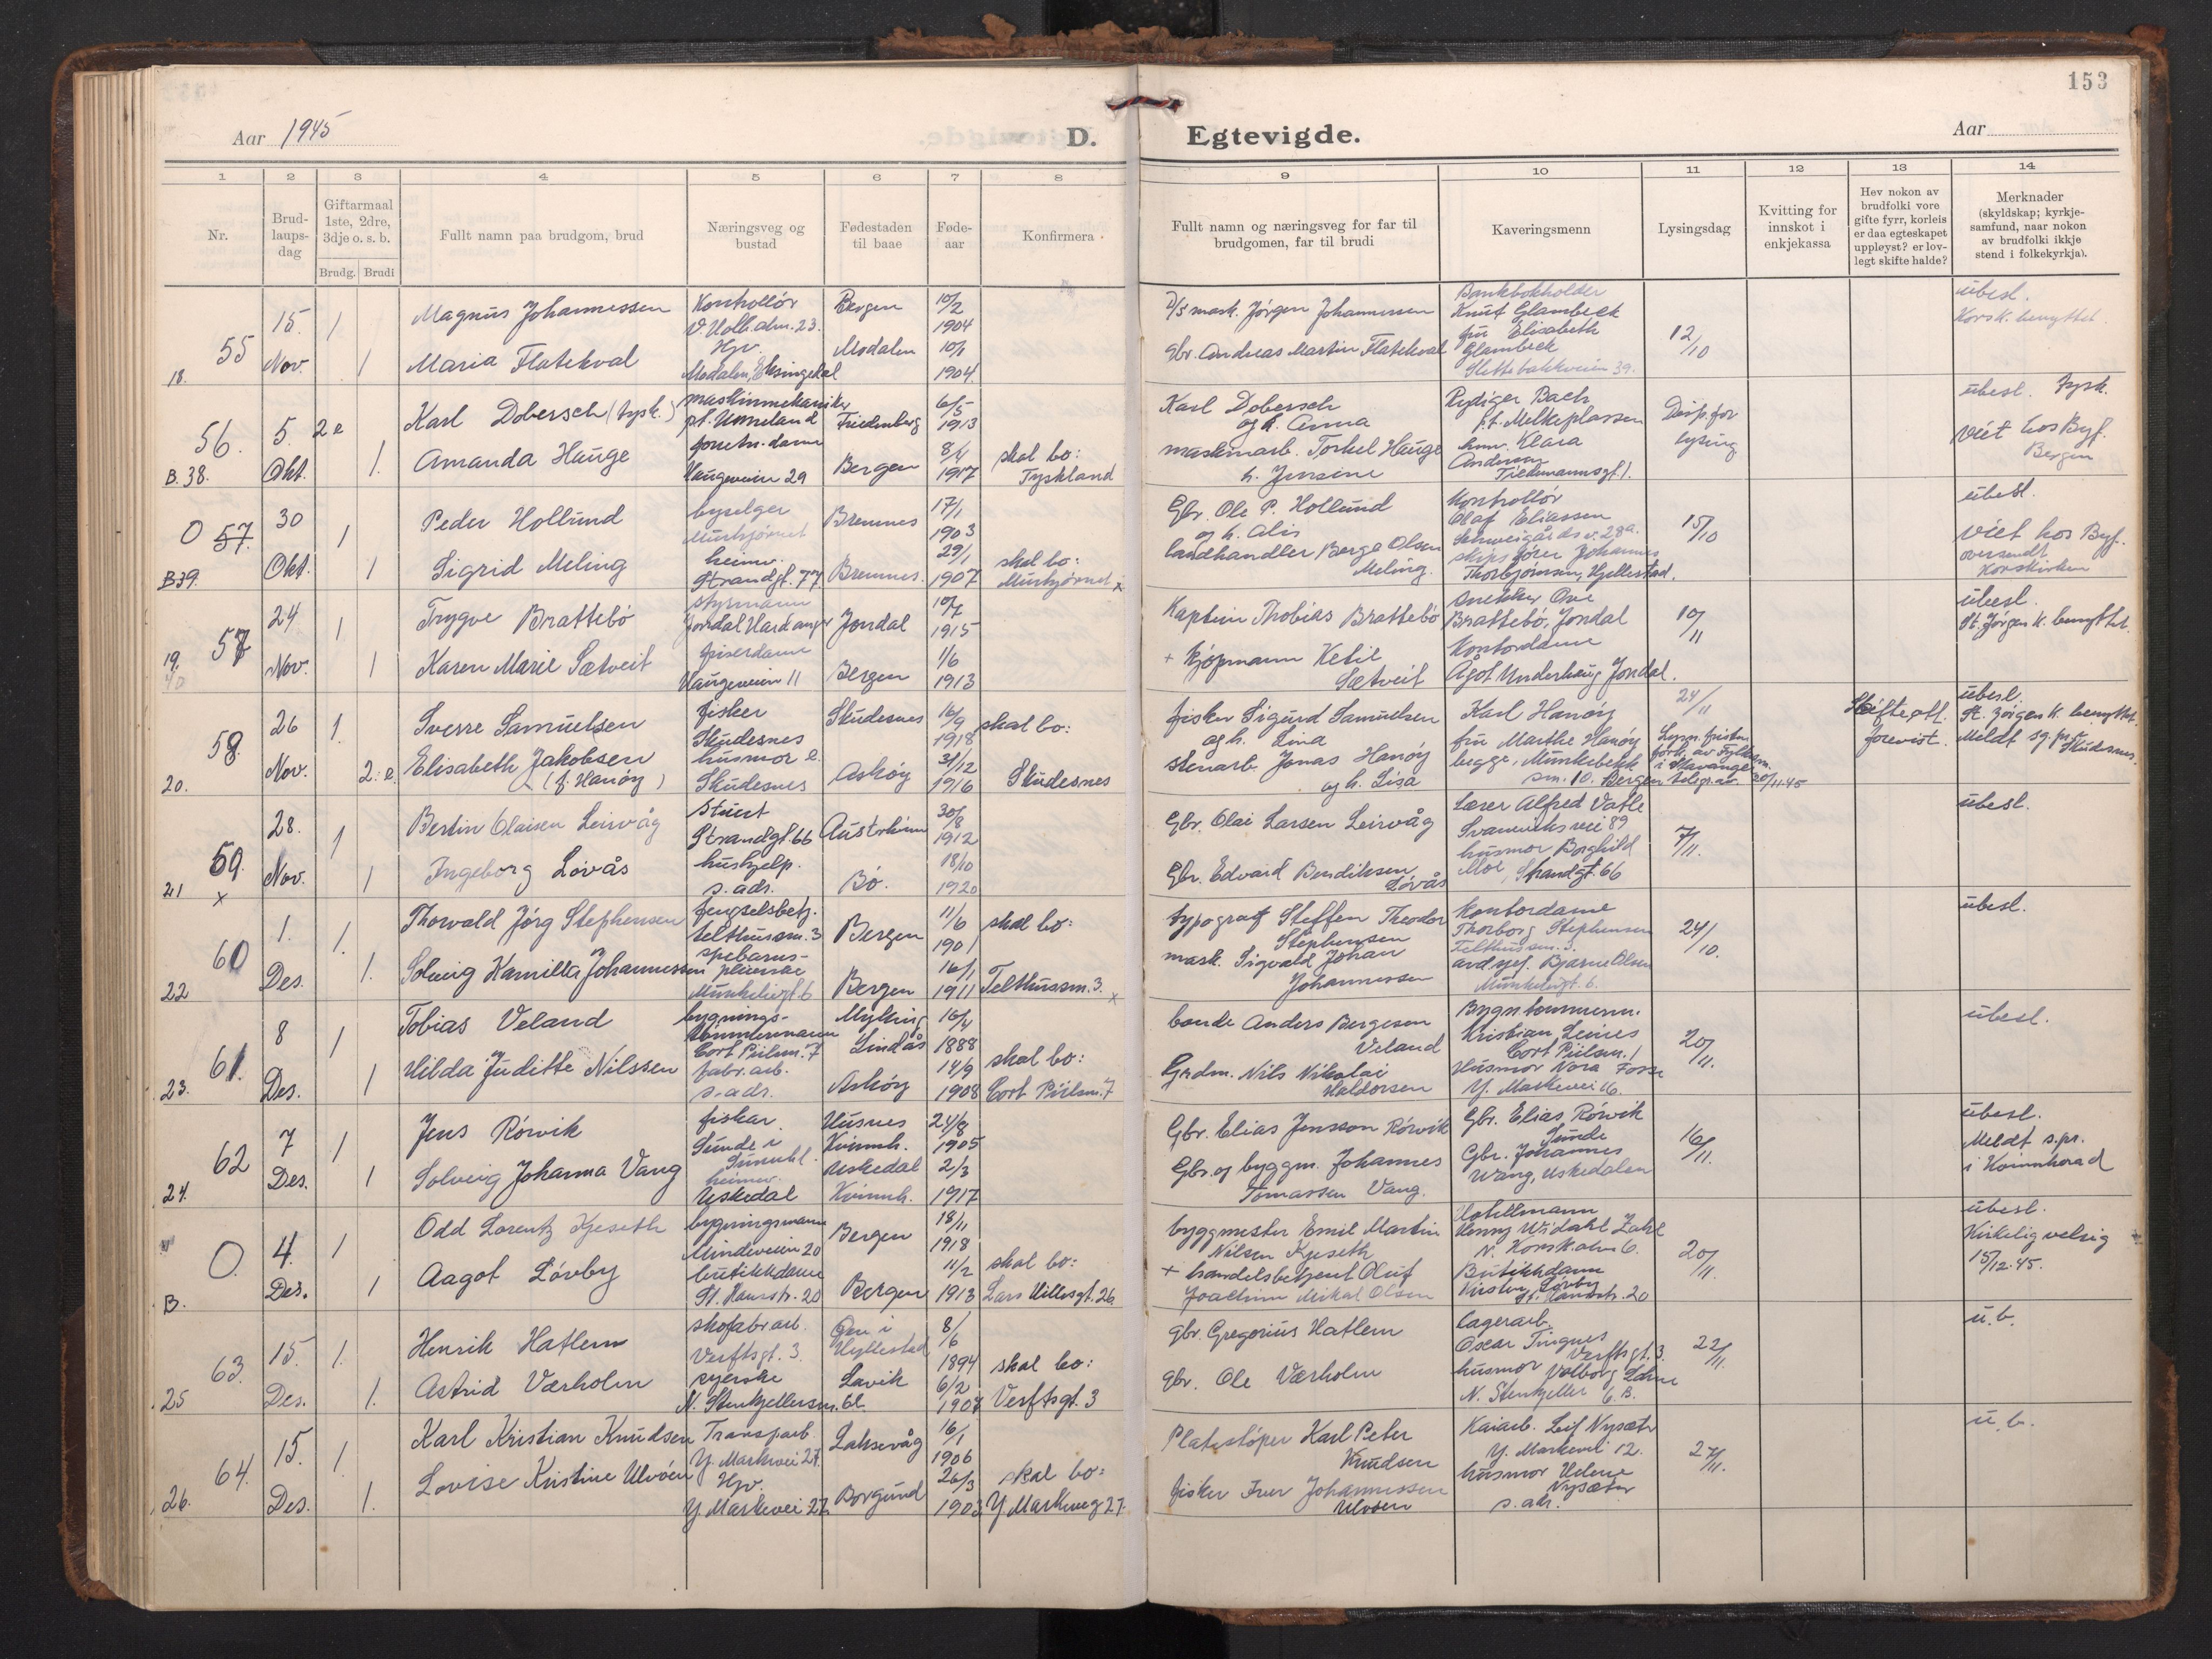 153
Aar 1945
D. Egtevigde.
Aar
1 2 3 4 5 6 7 8 9 10 11 12 13 14
Nr.
Brud-
laups-
dag
Giftarmaal
1ste, 2dre,
3dje o. s. b.
Brudg. Brudi
Fullt namn paa brudgom, brud
Næringsveg og
bustad
Fødestaden
til baae
Føde-
aar
Konfirmera
Fullt namn og næringsveg for far til
brudgomen, far til brudi
Kaveringsmenn
Lysingsdag
Kvitting for
innskot i
enkjekassa
Hev nokon av
brudfolki vore
gifte fyrr, korleis
er daa egteskapet
uppløyst? er lov-
legt skifte halde?
Merknader
(skyldskap; kyrkje-
samfund, naar nokon
av brudfolki ikkje
stend i folkekyrkja).
18. 55
15. Nov.
1
1
Magnus Johannessen
Kontrollør
V. Holb. alm. 23.
Bergen
10/2
1904
Maria Flatekval
Hjv.
Modalen, Eksingedal
Modalen
10/1
1904
D/S mask. Jørgen Johannessen
gbr. Andreas Martin Flatekval
Bankbokholder
Knut Glambeck
fru Elisabeth
Glambeck
Slettebakkveien 39.
12/10
übesl.
Korsk. benyttet.
B. 38. 56.
5. Okt.
2e
1.
Karl Dobersch (tysk.)
maskinmekaniker
pt. Unneland
Friedenberg
6/5
1913
Amanda Hauge
forretn. dame
Haugeveien 29
Bergen
8/4
1917
skal bo:
Tyskland
Karl Dobersch
og h. Anna
maskinarb. Torkel Hauge
h. Jensine
Rydiger Bach
pt. Melkeplassen
Klara
Andersen
Tidemannsgt. 1.
Disp. for
lysing
übesl. tysk.
Viet hos Byf.
Bergen
B39. O 57.
30 Okt.
1
1
Peder Hollund
byselger
Bremnes
17/1
1903
Sigrid Meling
heimv.
Strandgt. 77
Bremnes.
29/1
1907
skal bo:
Gbr. Ole P. Hollund
og h. Alis
landhandler Berge Olsen
Meling.
Kontrollør
Olaf Eliassen
Schweigårds v. 28a.
skipsfører Johannes
Thorbjørnsen, Hjellestad.
15/10
übesl.
Viet hos Byf.
oversendt
Korskirken
19. 40 57
24 Nov.
1
1
Trygve Brattebö
styrmann
Jondal Hardanger
Jondal
10/7
1915
Karen Marie Sætveit
friserdame
Haugeveien 11
Bergen
1/6
1913
Kaptein Thobias Brattebö
+ kjøpmann Ketil
Sætveit
snekker Ove
Brattebö, Jondal
Kontordame
Ågot Underhaug Jondal.
10/11
übesl.
St. Jørgen k. benyttet.
20. 58.
26 Nov.
1.
2. e
Sverre Samuelsen
fisker
Skudesnes
Skudesnes
16/9
1918
skal bo:
Elisabeth Jakobsen
(f. Hanöy)
husmor e.
Skudesnes
Asköy
31/12
1916
Skudesnes
fisker Sigurd Samuelsen
og h. Lina
stenarb. Jonas Hanöy
og h. Lisa
Karl Hanöy
fru Marthe Hanöy
begge, Munkebekk
sm. 10. Bergen
24/11
Lysn. fristen
fork. av Fylkesm.
i Stavanger
telegr. av. 20/11-45
Skifteatt.
forevist.
übesl.
St. Jørgen k. benyttet.
Meldt sg. pr. i
Skudesnes.
21 59. x
28. Nov.
1
1
Bertin Olaisen Leirvåg
stuert
Strandgt. 66
Austrheim
30/8
1912
Ingeborg Lövås
hushjelp.
s. adr.
Bö.
18/10
1920
Gbr. Olai Larsen Leirvåg
Gbr. Edvard Bendiksen
Lövås
Lærer Alfred Vatle
Svaneviks vei 89
husmor Borghild
Moe, Strandgt 66
7/11.
übesl.
22 60
1. Des.
1.
1.
Thorvald Jörg Stephensen
fengselsbetj.
telthussm. 3
Bergen
11/6
1901
skal bo:
Solveig Kamilla Johannessen
spebarns-
pleierske
Munkeliegt. 6
Bergen
16/1
1911
Telthussm. 3. x
typograf Steffen Theodor
Stephensen
mask. Sigvald Johan
Johannessen
Kontordame
Thorborg Stephensen
Telthussm. 3.
avd. sjef. Bjarne Olsen
Munkeliegt. 6.
24/10.
übesl.
23. 61.
8 Des.
1
1
Tobias Veland
bygnings-
tömmermann
Cort Piilsm. 7
Myking
Lindås
16/4
1888
Hilda Juditte Nilssen
fabr. arb.
s. adr.
Asköy
14/9
1908
skal bo:
Cort Piilsm. 7
bonde Anders Bergesen
Veland
Grdm. Nils Nikolai
Haldorsen
Bygn. tømmerm.
Kristian Leines
Cort Piilsm. 1
Husmor Nora Fosse
Y. Markevei 16.
20/11.
übesl.
24. 62
7 Des.
1
1
Jens Rörvik
fiskar
Sunde i
Husnes
Kvinnh.
24/8
1905
Solveig Johanna Vang
heimv.
Uskedal
Uskedal
Kvinnh.
2/3
1917
Gbr. Elias Jensson Rörvik
Gbr. og byggm. Johannes
Tomassen Vang.
Gbr. Elias Rörvik
Sunde
Gbr. Johannes
Wang, Uskedalen
16/11.
übesl.
Meldt s.pr.
i Kvinnherad
B. O.
4. Des.
1
1
Odd Lorentz Kjeseth
bygningsmann
Mindeveien 20
Bergen
18/11
1918
Aagot Lövby
butikkdame
St. Hansstr. 20
Bergen
11/2
1913
skal bo:
Lars Hillesgt. 26
byggmester Emil Martin
Nilsen Kjeseth
+ handelsbetjent Oluf
Joachim Mikal Olsen
Hotellmann
Henny Widahl Zahl
N. Korsk. alm 6.
Butikkdame
Kirsten Lövby
St. Hansstr. 20
20/11.
übesl.
Kirkelig velsig
15/12. 45.
25 63.
15. Des.
1.
1.
Henrik Hatlem
skofabr arb.
Verftsgt. 3.
Hyllestad
8/6
1894
Astrid Værholm
syerske
N. Stenkjellersm. 6b.
Lavik
6/2
skal bo:
Verftsgt. 3
gbr. Gregorius Hatlem
gbr. Ole Værholm
Lagerarb.
Oscar Tingnes
Verftsgt. 3.
husmor Valborg
N. Stenkjeller 6. B.
22/11.
u. b.
26. 64.
15. Des.
1.
1.
Karl Kristian Knudsen
Transparb.
Y. Markevei 27.
Laksevåg
16/1
1906
Lovise Kristine Ulvöen
Hjv.
Y. Markevei 27.
Borgund
26/3
1903
skal bo:
Y. Markeveg 27.
Platestøper Karl Peter
Knudsen
fisker Iver Johannessen
Ulvöen
Kaiarb. Leif Nysæter
Y. Markevei 12.
husmor Helene
Nysæter
s. adr.
27/11.
u. b.